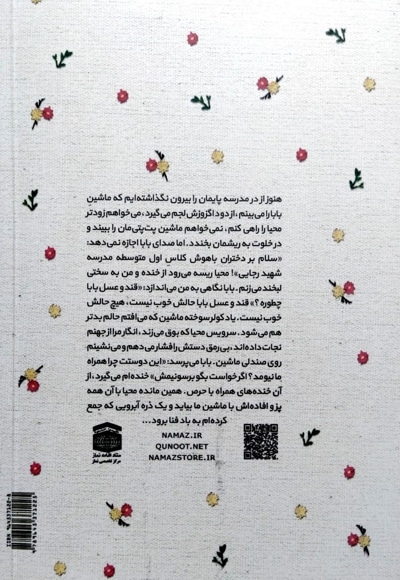 هنوز از در مدرسه پایمان را بیرون نگذاشته‌ایم که ماشین
بابا را می‌بینم، از دود اگزوزش لجم می‌گیرد، می‌خواهم زودتر
محیا را راهی کنم، نمی‌خواهم ماشین پت‌پتی‌مان را ببیند و
در خلوت به ریشمان بخندد. اما صدای بابا اجازه نمی‌دهد:
«سلام بر دختران باهوش کلاس اول متوسطه مدرسه
شهید رجایی»! محیا ریسه می‌رود از خنده و من به سختی
لبخند می‌زنم. بابا نگاهی به من می‌اندازد: «قند و عسل بابا
چطوره؟» قند و عسل بابا حالش خوب نیست، هیچ حالش
خوب نیست. یاد کولر سوخته ماشین که می‌افتم حالم بدتر
هم می‌شود. سرویس محیا که بوق می‌زند، انگار مرا از جهنم
نجات داده‌اند، بی‌رمق دستش را فشار می‌دهم و می‌نشینم
روی صندلی ماشین. بابا می‌پرسد: «این دوستت چرا همراه
ما نیومد؟ اگر خواست بگو برسونیمش» خنده‌ام می‌گیرد، از
آن خنده‌های همراه با حرص. همین مانده محیا با آن همه
پز و افاده‌اش با ماشین ما بیاید و یک ذره آبرویی که جمع
کرده‌ام به باد فنا برود...
NAMAZ.IR
QUNOOT.NET
NAMAZSTORE.IR
ستاد اقامه نماز
مرکز تخصصی نماز